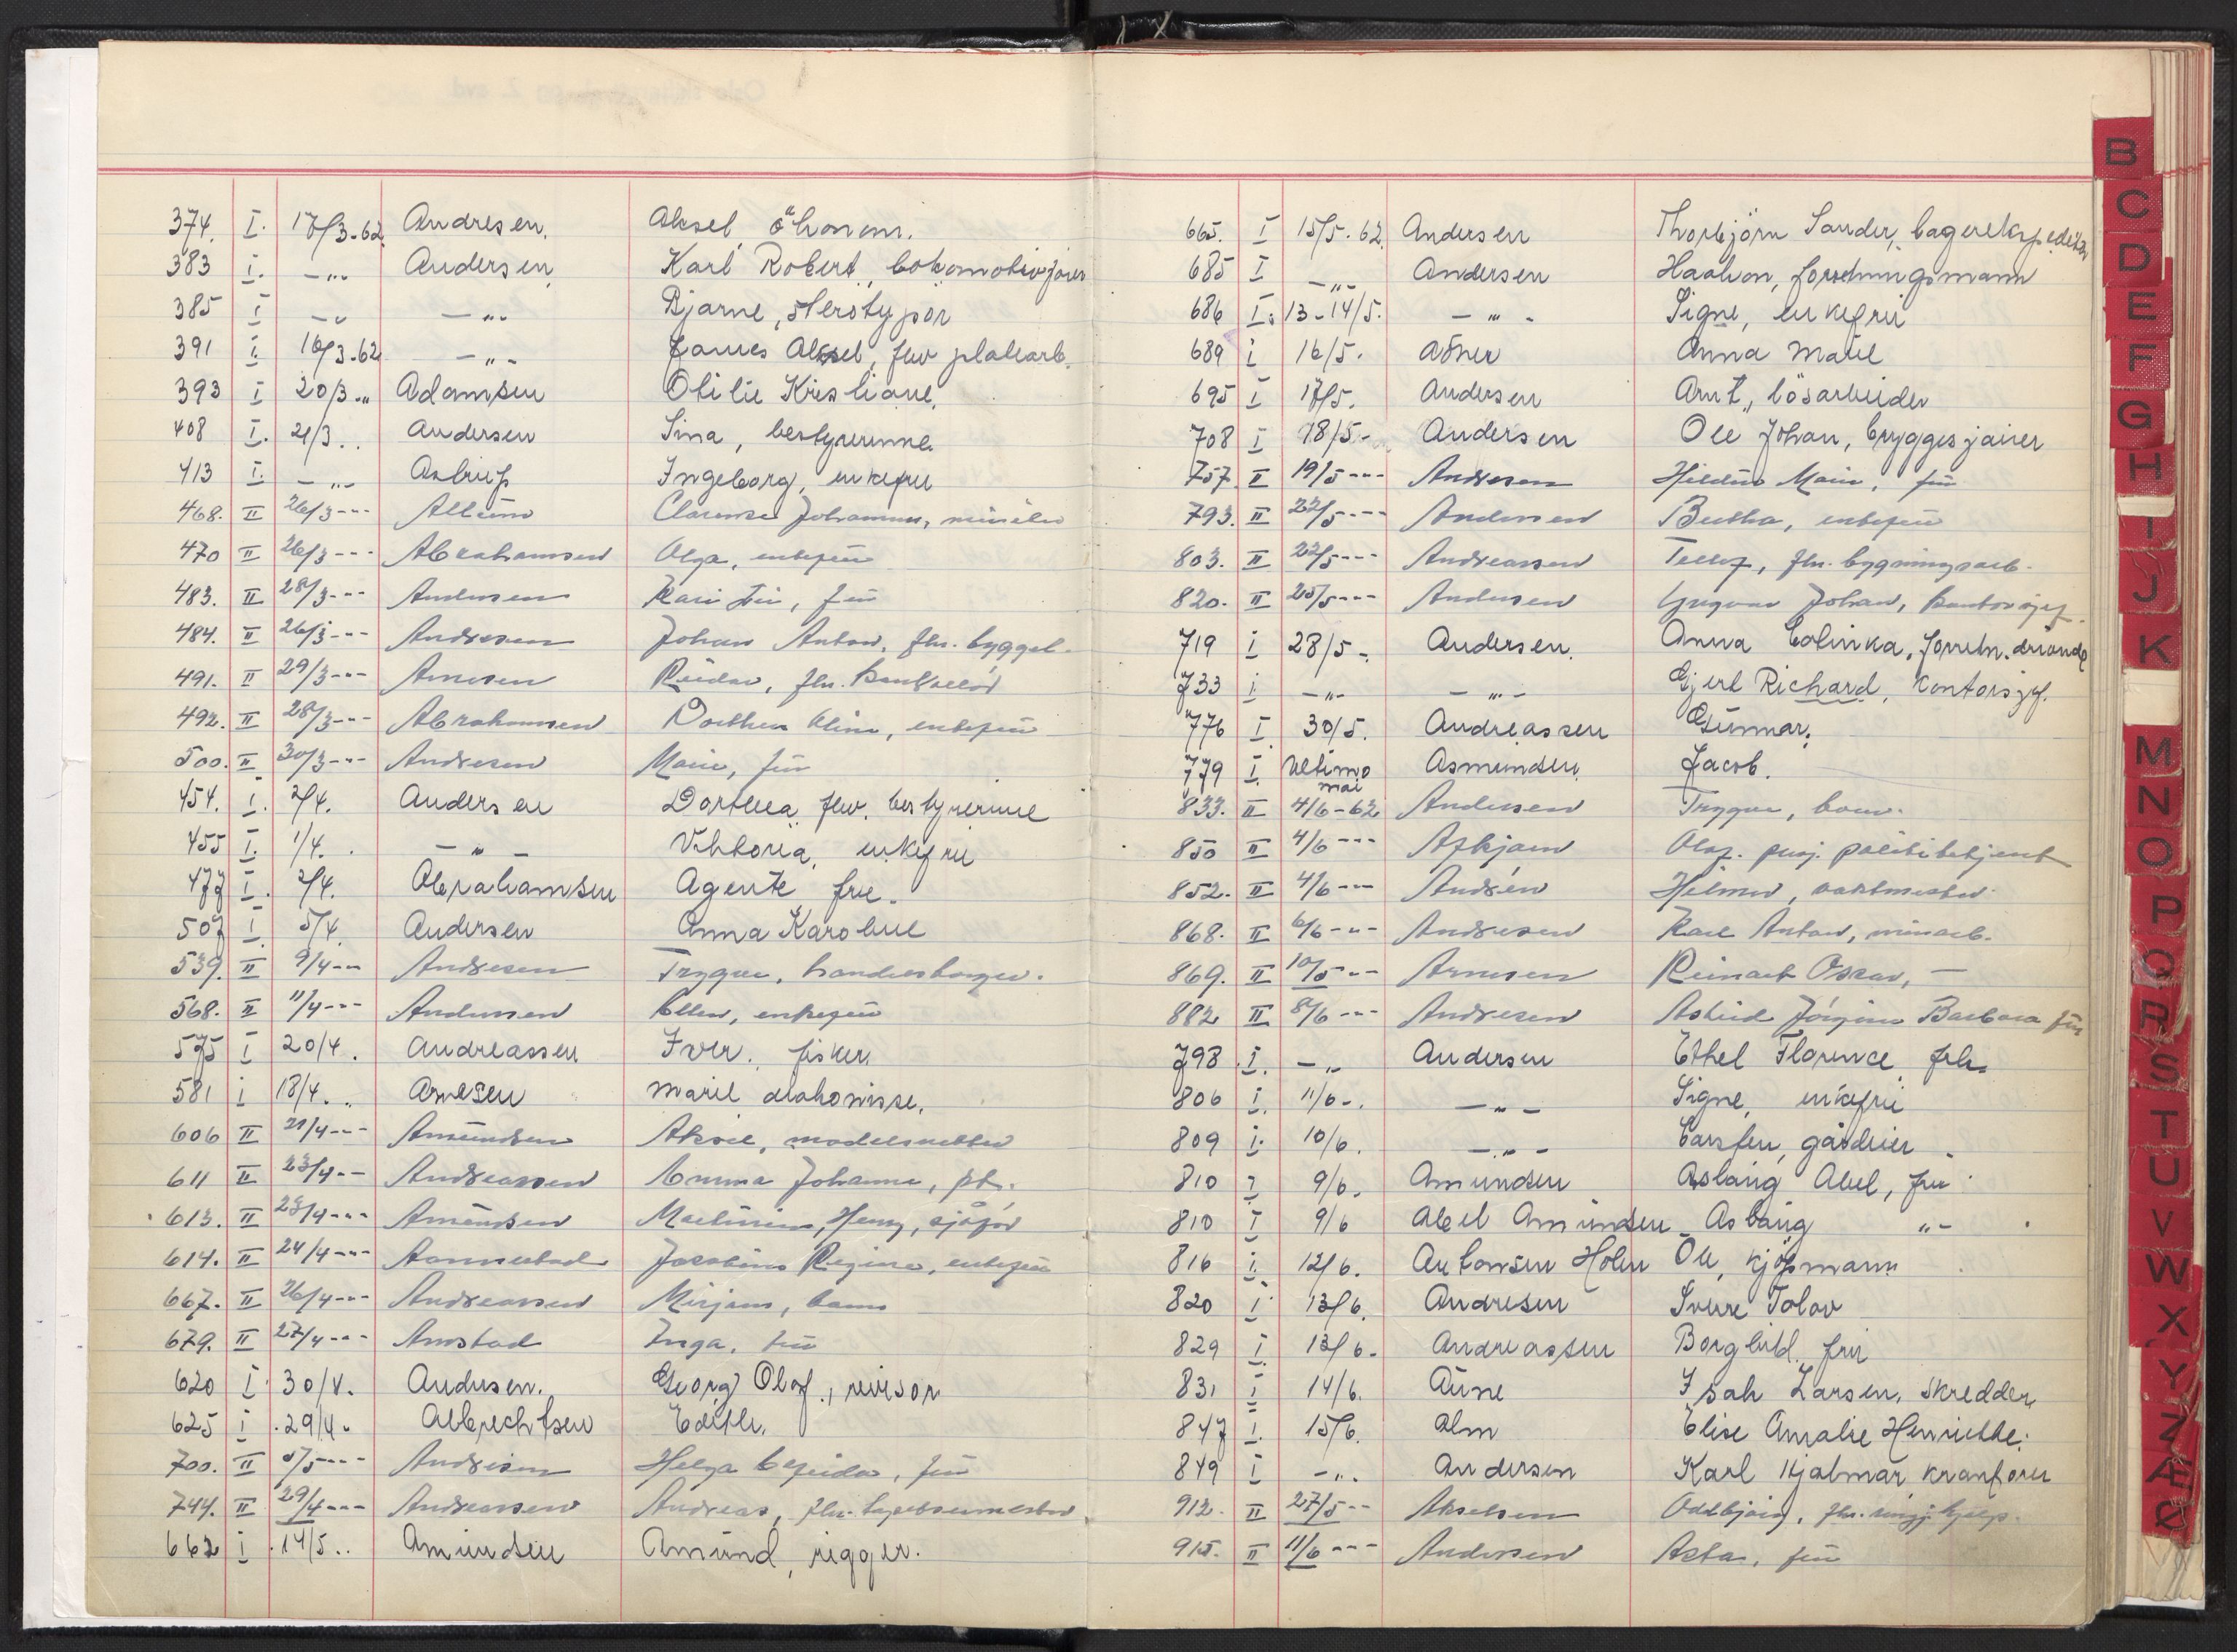 374. I. 17/3-62 Andresen. Aksel økonom.
383 I. -"- Andersen Karl Robert, lokomotivfører
385 I -"- -"- Bjarne, sterotypør
391 I. 16/3-62 -"- James Aksel, fhv platearb.
393 I 20/3-" Adamsen Otilie Kristiane.
408 I. 21/3.. Andersen Sina, bestyrerinne.
413 I. -"- Astrup Ingeborg, enkefru
468. II 26/3-"- Johannes,
470 II 26/3-"- Abrahamsen Olga, enkefru
483. II 28/3-"- Andersen Kari, fru
484. II 26/3-"- Andresen Johan Anton, fhv. byggel.
491. II 29/3-"- Arnesen Reidar, fhv.
492. II 28/3-"- Abrahamsen Dorthea Oline, enkefru
500. II 30/3-"- Andresen Marie, fru
454. I. 2/4. Andersen Dorthea fhv. bestyrerinne
455 I. 1/4. -"- Viktoria, enkefru
477 I. 2/4. Abrahamsen Agente frue.
507 I. 5/4 Andersen Anna Karoline
539. II 9/4-"- Andresen Trygve, handelsborger.
568. II 11/4-"- Andersen Ellen, enkefru
575 I 20/4. Andreassen Iver. fisker.
581 I 18/4.. Arnesen Marie diakonisse.
606 II 21/4-"- Amundsen Aksel, modellsnekker
611 II 23/4-"- Andreassen Emma Johanne, pt.
613. II 23/4-"- Amundsen Martinius, Henry, sjåfør
614. II 24/4-"- Aannestad Jacobine Regine, enkefru
667. II 26/4-"- Andreassen Mirjam, barn
679. II 27/4-"- Amstad Inga, fru
620 I. 30/4. Andersen. Georg Olaf, revisor
625 I. 29/4. Albrechtsen Edith.
700. II 5/5-"- Andresen Helga, fru
744. II 29/4-"- Andreassen Andreas, fhv.
662 I 14/5.. Amundsen Amund, rigger.
665. I 15/5.62. Andersen Thorbjørn Sander, lagerekspeditør
685 I -"- Andersen Haakon, forretningsmann
686 I. 13-14/5. -"- Signe, enkefru
689 I 16/5. Anna Marie
695 I 17/5. Andersen Arnt, løsarbeider
708 I 18/5- Andersen Ole Johan, bryggesjauer
757. II 19/5-"- Andresen Marie, fru
793. II 22/5-"- Andersen Bertha, enkefru
803. II 22/5-"- Andreassen Tellef, fhv. bygningsarb.
820. II 25/5-"- Andersen Yngvar Johan, kontorsjef.
719 I 28/5-. Andersen. Anna Colinka, forretn.drivende
733 I. -"- -"- Gjert Richard, kontorsjef.
776 I. 30/5. Andreassen Gunnar.
779 I. Ultimo mai Asmundsen. Jacob.
833. II 4/6-62 Andersen Trygve, barn.
850 II 4/6-"- Askjem Olaf. pensj. politibetjent
852. II 4/6-"- Andrén Hilmer, vaktmester.
868. II 6/6-"- Andresen Karl Anton, murarb.
869. II 10/5-"- Arnesen Reinart Oskar, -
882 II 8/6-"- Andresen Astrid Jørgine Barbara fru
798 .I. -"- Andersen Ethel Florence frk.
806 I. 11/6-. -"- Signe, enkefru
809 I. 10/6. -"- Carsten, gårdeier
810 I 9/6. Amundsen Aslaug Abel, fru
810 I 9/6 Abel Amundsen Aslaug "-
816 I. 12/6. Antonsen Holen Ole, kjøpmann
820 I 13/6. Andresen Sverre Tolov
829 I. 13/6. Andreassen Borghild fru
831 I 14/6. Aune Isak Larsen, skredder
847 I. 15/6. Alm Elise Amalie Henriette.
849 I -"- Andersen Karl Hjalmar kranfører
912. II 27/5-"- Akselsen Oddbjørg, fhv. rengj.hjelp.
915. II 11/6-"- Andersen Asta, fru
B
C
D
E
F
G
H
I
J
K
M
N
O
P
Q
R
S
T
U
V
W
X
Y
Z
Æ
Ø